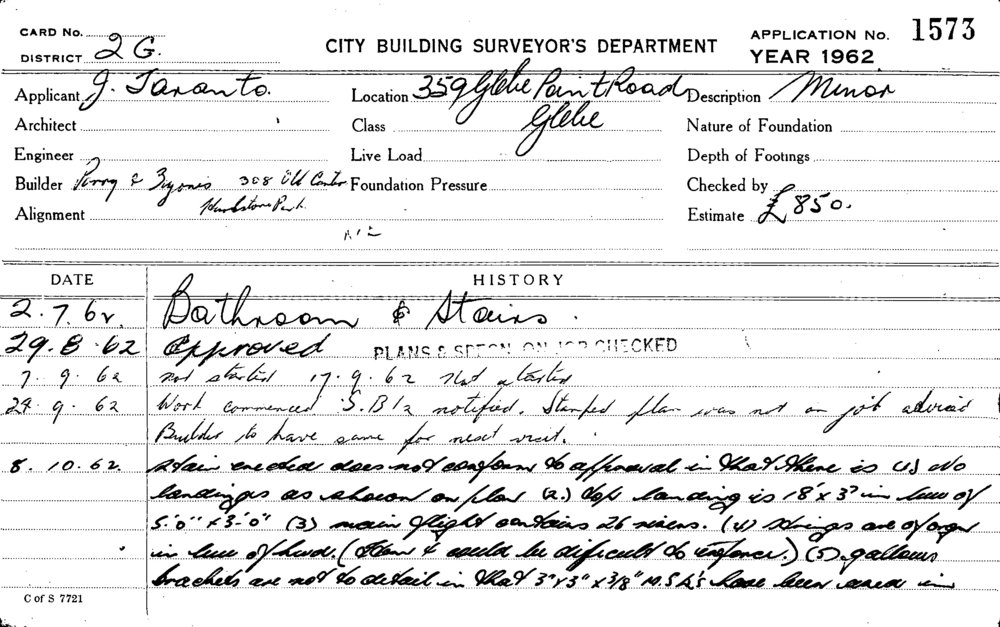 CARD No.
DISTRICT 2 G.
CITY BUILDING SURVEYOR'S DEPARTMENT
APPLICATION No. 1573
YEAR 1962
Applicant J. Taranto.
Location 359 Glebe Point Road
Glebe
Description Minor
Architect
Class
Nature of Foundation
Engineer
Live Load
Depth of Footings
Builder Parry & 308 Old Canter
Hurlstone Park
Foundation Pressure
Checked by
Alignment
Estimate £850.
DATE HISTORY
2.7.62. Bathroom & Stairs.
29.8.62 Approved PLANS & SPECN. ON JOB CHECKED
7.9.62 not started 17.9.62 Not started
24.9.62 Work commenced S.B12 notified. Stamped plan was not on job advised
Builder to have same for next visit.
8.10.62. Stair erected does not conform to approval in that there is (1) No
landings as shown on plan (2.) top landing is in lieu of
5'.0" x 3'.0" (3) main flight contains 26 risers. (4) Strings are of
in lieu of hwd. (Item 4 would be difficult to enforce.) (5) gallows
brackets are not to detail in that 3" x 3" x 3/8" M.S. have been used in
C of S 7721